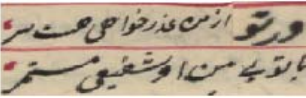 ور تو از من عذر خواهی هست سر
با تو بی من او شفیعی مستمر